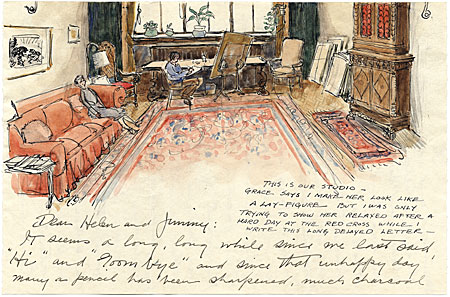 THIS IS OUR STUDIO —
GRACE SAYS I MAKE HER LOOK LIKE
A LAY-FIGURE — BUT I WAS ONLY
TRYING TO SHOW HER RELAXED AFTER A
HARD DAY AT THE RED CROSS WHILE I
WRITE THIS LONG DELAYED LETTER —
Dear Helen and Jimmy:
It seems a long, long while since we last said
"Hi" and "Goombye" and since that unhappy day
many a pencil has been sharpened, much charcoal